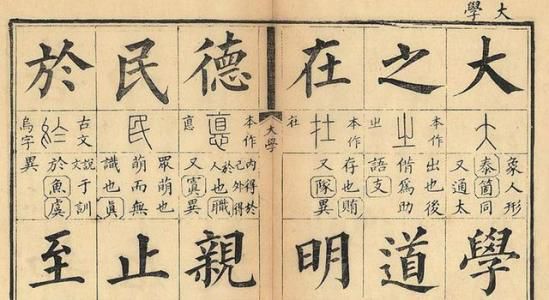 大學
大
象人形
泰箇同
又通太
學
之
本作
出也後
偕爲助
語支
道
在
本作
存也賄
又隊異
明
大學
德
本作
內得於
己外得
於人也職
又寘異
悳
親
民
眾萌也
萌而無
識也眞
止
於
古文
說文于訓
於魚虞
烏字異
至